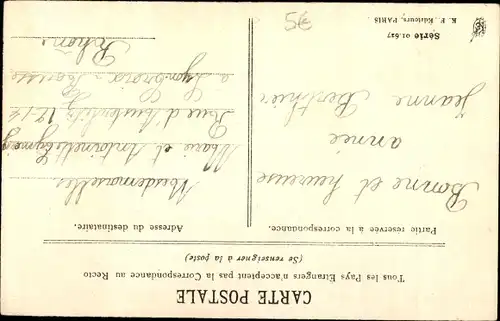 CARTE POSTALE
Tous les Pays Etrangers n'acceptent pas la Correspondance au Recto
(Se renseigner à la poste)
Partie réservée à la correspondance.
Adresse du destinataire.
Bonne et heureuse
année
Jeanne Berthier
Mesdemoiselles
Marie et Antoinette
Rue d'Austerlitz 12
Croix-Rousse
a Lyon
Rhône
Série 01.627
K. F. Editeurs, PARIS
5€